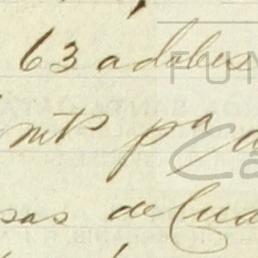 63 adobes
mts pa
sas de Cua
FUN
Ca